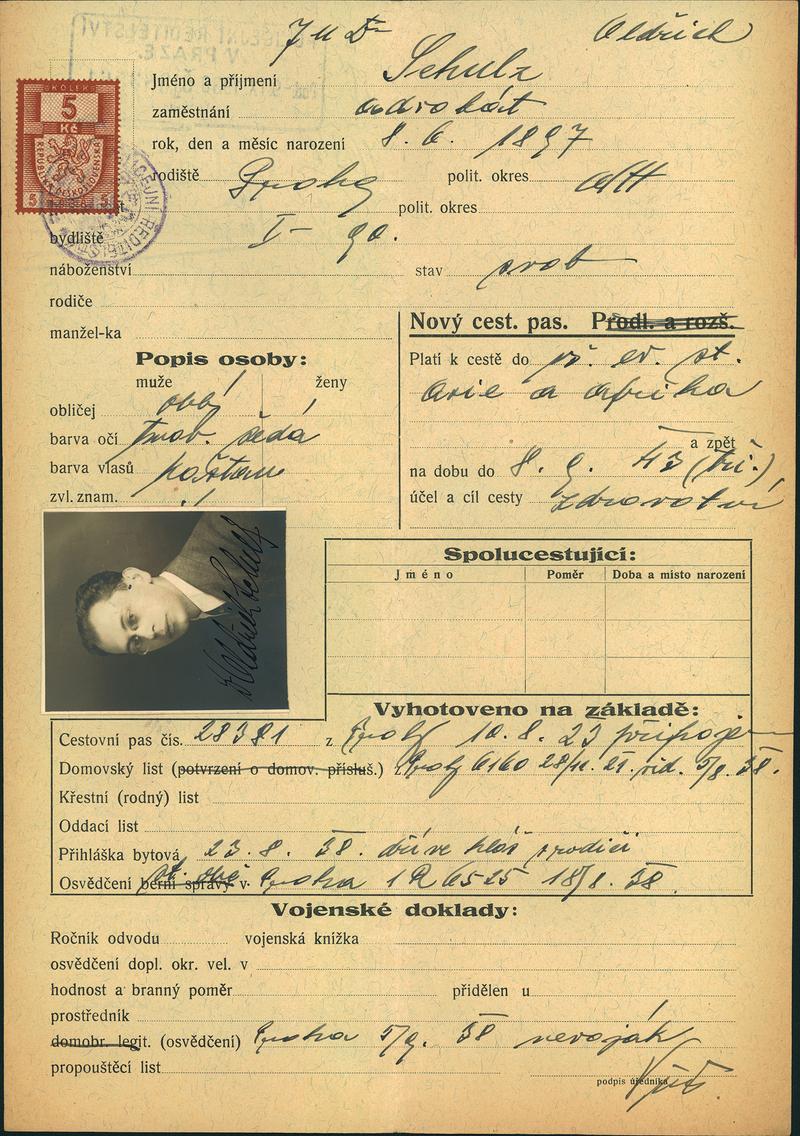 JUDr Oldřich
Jméno a příjmení Schulz
zaměstnání advokát
rok, den a měsíc narození 8. 6. 1897
rodiště Praha polit. okres
polit. okres
bydliště I - 90.
náboženství stav svob
rodiče
manžel-ka
Nový cest. pas. Prodl. a rozš.
Popis osoby:
muže ženy
obličej
barva očí tmav. šedá
barva vlasů kaštan
zvl. znam.
Platí k cestě do vš. ev. st.
Asie a Afrika
a zpět
na dobu do 8. 9. 43
účel a cíl cesty zdravotní
KOLEK
5
Kč
REPUBLIKA ČESKOSLOVENSKÁ
5 5
Dr Oldřich Schulz
Spolucestující:
Jméno Poměr Doba a místo narození
Vyhotoveno na základě:
Cestovní pas čís. 28381 z Prahy 10. 8. 23
Domovský list (potvrzení o domov. přísluš.) Prahy 6160 28/11. 21. vid. 5/8. 38.
Křestní (rodný) list
Oddací list
Přihláška bytová 23. 8. 38. dříve
Osvědčení berní správy v Praha 18/8. 38.
Vojenské doklady:
Ročník odvodu vojenská knížka
osvědčení dopl. okr. vel. v
hodnost a branný poměr přidělen u
prostředník
domobr. legit. (osvědčení) Praha 5/9. 38 nevoják
propouštěcí list
podpis úředníka